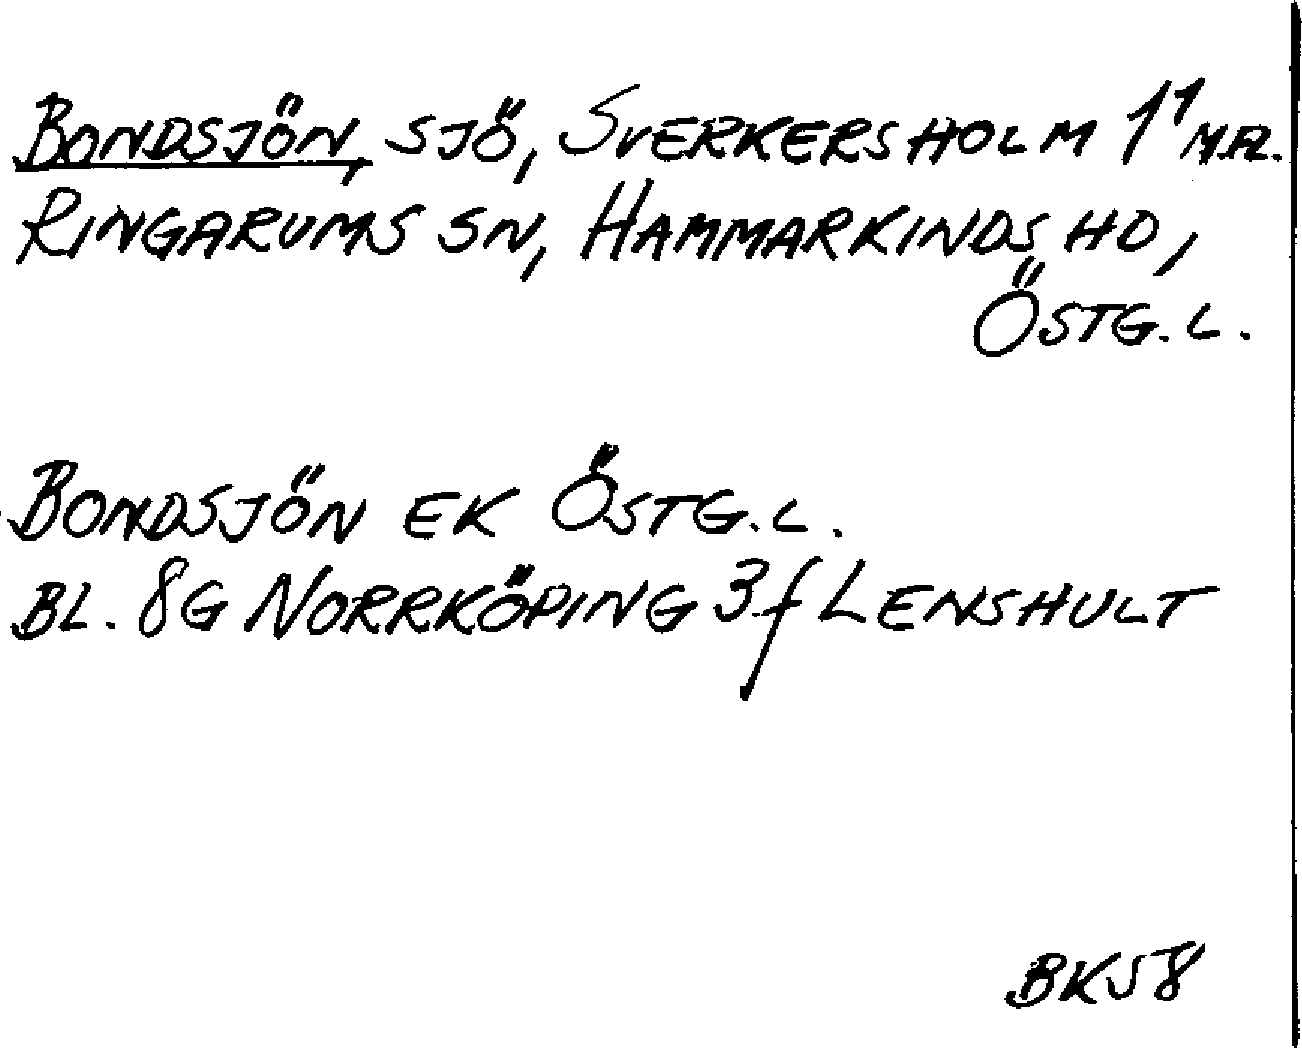 BONDSJÖN, SJÖ, SVERKERSHOLM 1¹ M.FL.
RINGARUMS SN, HAMMARKINDS HD,
ÖSTG. L.
BONDSJÖN EK ÖSTG. L.
BL. 8G NORRKÖPING 3f LENSHULT
BK58